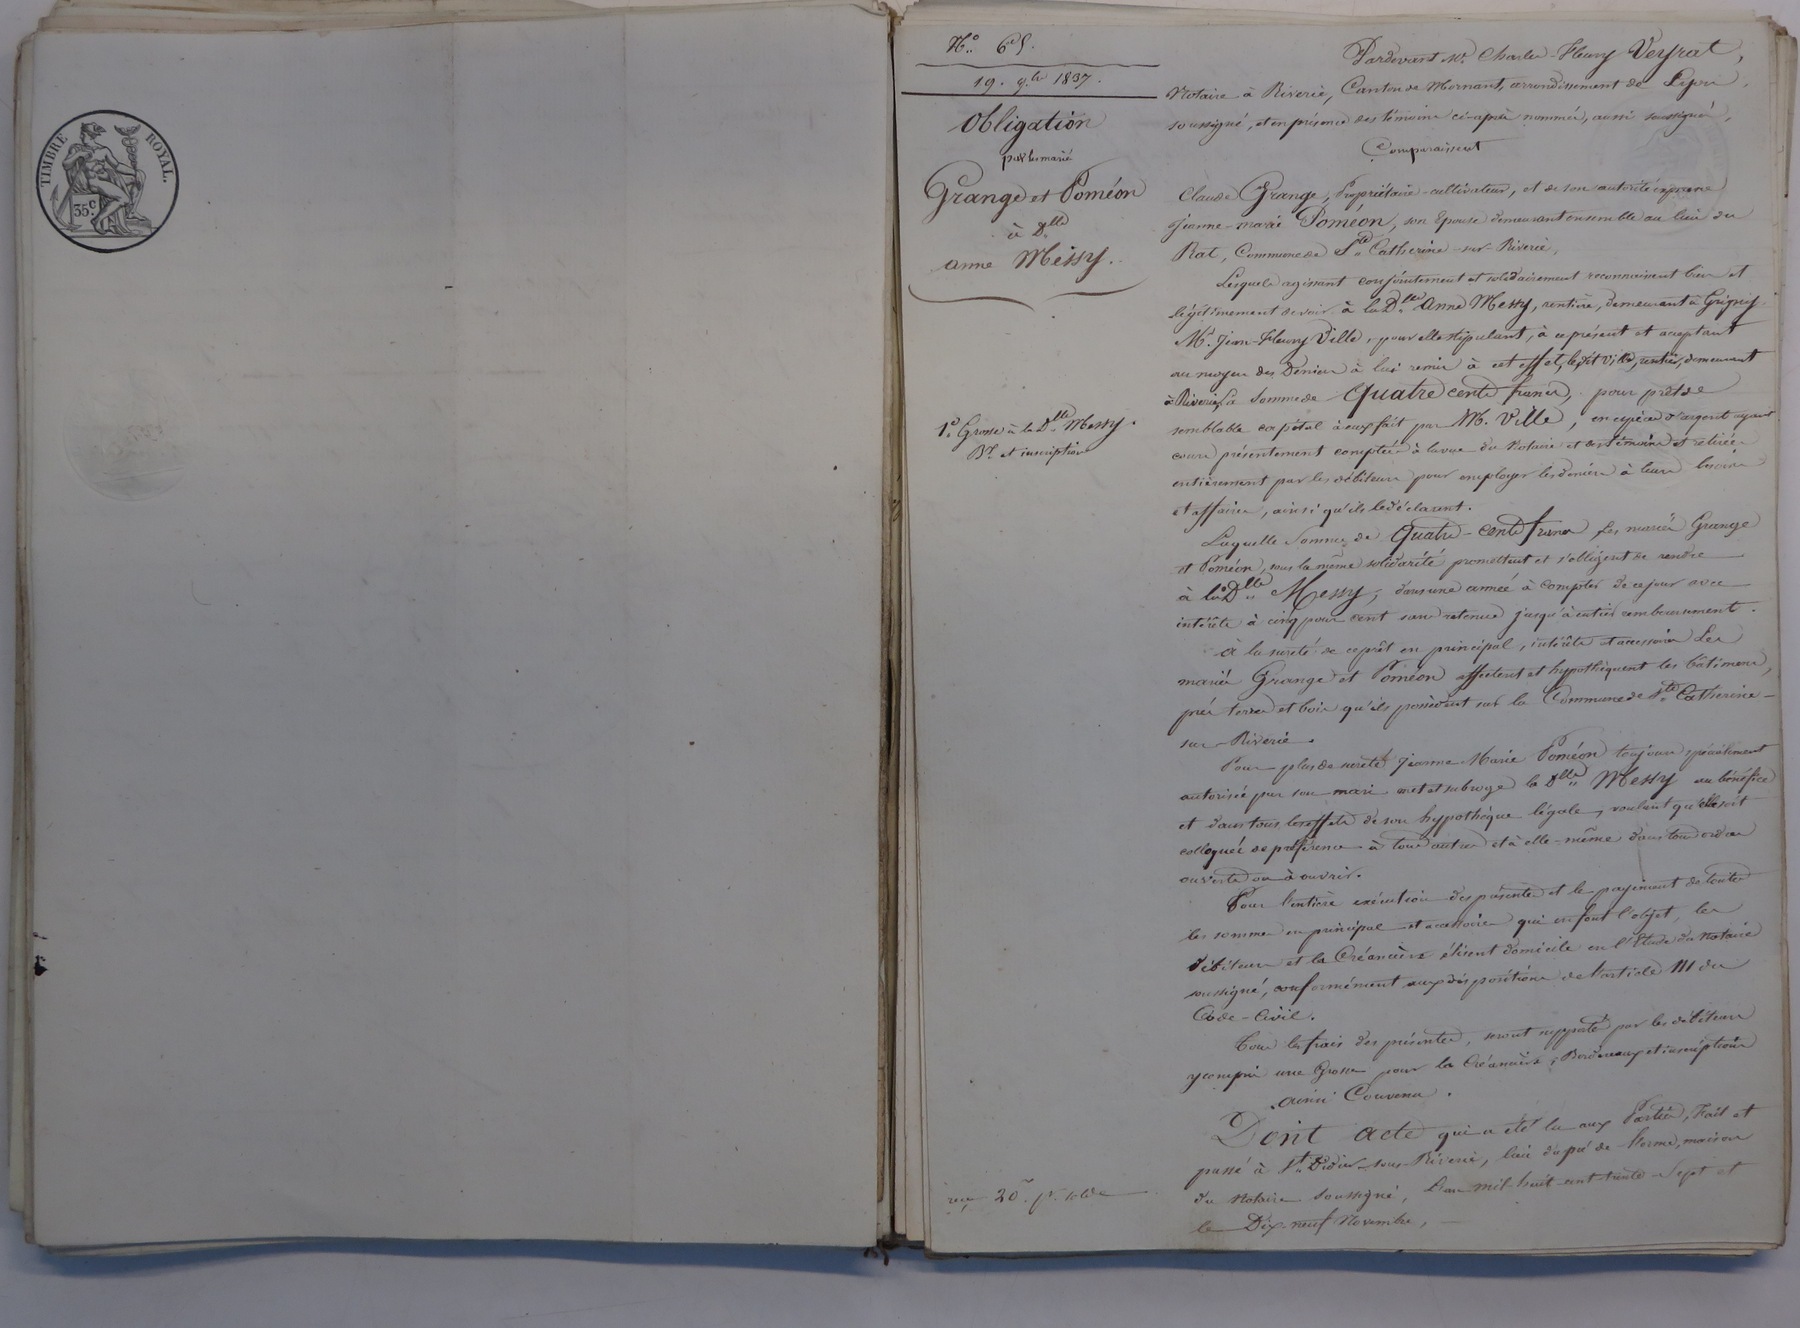 TIMBRE ROYAL.
35c.
No. 65.
19. 9.bre 1837.
Obligation
par les mariés
Grange et Poméon
à Dlle
anne Messy.
1e. Grosse à la Dlle Messy.
Bx. et inscription
reçu 20f. p. solde
Pardevant Me. Charles-Fleury Veyrat,
Notaire à Riverie, Canton de Mornant, arrondissement de Lyon,
soussigné, et en présence des témoins ci-après nommés, aussi soussignés,
Comparaissent
Claude Grange, Propriétaire-cultivateur, et de son autorité expresse
Jeanne-marie Poméon, son Epouse demeurant ensemble au lieu du
Rat, Commune de Ste Catherine-sur-Riverie,
Lesquels agissant conjointement et solidairement reconnaissent bien et
légitimement devoir à la Dlle Anne Messy, rentière, demeurant à Grigny,
Mr. Jean-Fleury Ville, pour elle stipulant, à ce présent et acceptant
au moyen des Deniers à lui remis à cet effet, ledit Ville, rentier, demeurant
à Riverie, La Somme de Quatre cents francs, pour prêt de
semblable capital à eux fait par M. Ville, en espèces d'argent ayant
cours présentement comptées à la vue du Notaire et des témoins et retirées
entièrement par les débiteurs pour employer les deniers à leurs besoins
et affaires, ainsi qu'ils le déclarent.
Laquelle Somme de Quatre-cents francs, Les mariés Grange
et Poméon, sous la même solidarité promettent et s'obligent de rendre
à la Dlle Messy, dans une année à compter de ce jour avec
intérêts à cinq pour cent sans retenue jusqu'à entier remboursement.
à la sureté de ce prêt en principal, intérêts et accessoires Les
mariés Grange et Poméon affectent et hypothèquent les bâtimens,
prés terres et bois qu'ils possèdent sur la Commune de Ste Catherine-
sur-Riverie.
Pour plus de sureté Jeanne Marie Poméon toujours spécialement
autorisée par son mari met et subroge la Dlle Messy au bénéfice
et dans tous les effets de son hypothèque légale, voulant qu'elle soit
colloquée de préférence à tous autres et à elle-même dans tous ordres
ouverts ou à ouvrir.
Pour l'entière exécution des présentes et le payement de toutes
les sommes en principal et accessoires qui en font l'objet, les
débiteurs et la Créancière élisent domicile en l'Etude du Notaire
soussigné, conformément aux dispositions de l'article 111 du
Code-Civil.
Tous les frais des présentes, seront supportés par les débiteurs
y compris une Grosse pour la Créancière, Bordereaux et inscriptions
ainsi Convenu.
Dont acte qui a été lu aux Parties, Fait et
passé à St. Didier-sous-Riverie, lieu du pré de l'orme, maison
du Notaire soussigné, L'an mil-huit-cent-trente-Sept et
le Dix-neuf Novembre,